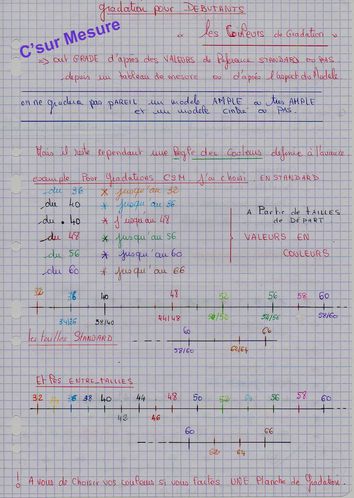 gradation pour DEBUTANTS
C'sur Mesure
"les Couleurs de Gradation"
=> ont GRADE d'après des VALEURS de Référence STANDARD ou PAS.
depuis un tableau de mesure ou d'après l'aspect du Modèle.
on ne gradera pas pAREIL un modèle AMPLE ou très AMPLE
et un modèle cintré ou PAS.
Mais il reste cependant une Règle des Couleurs définie à l'avance.
exemple Pour Gradations CSM j'ai choisi EN STANDARD
du 36 * jusqu'au 32
du 40 * jusqu'au 36
du 40 * jusqu'au 48
du 48 * jusqu'au 56
du 56 * jusqu'au 60
du 60 * jusqu'au 66
A Partir de TAILLES
de DÉPART
VALEURS EN
COULEURS
32 36 40 48 52 56 58 60
34/36 38/40 44/48 50/52 54/56 58/60
60 66
58/60 62/64
les tailles STANDARD
Et les ENTRE-TAILLES
32 36 38 40 44 48 50 52 54 56 58 60
42 46
60 66
62 64
! A vous de Choisir vos couleurs si vous faites UNE Planche de Gradation.